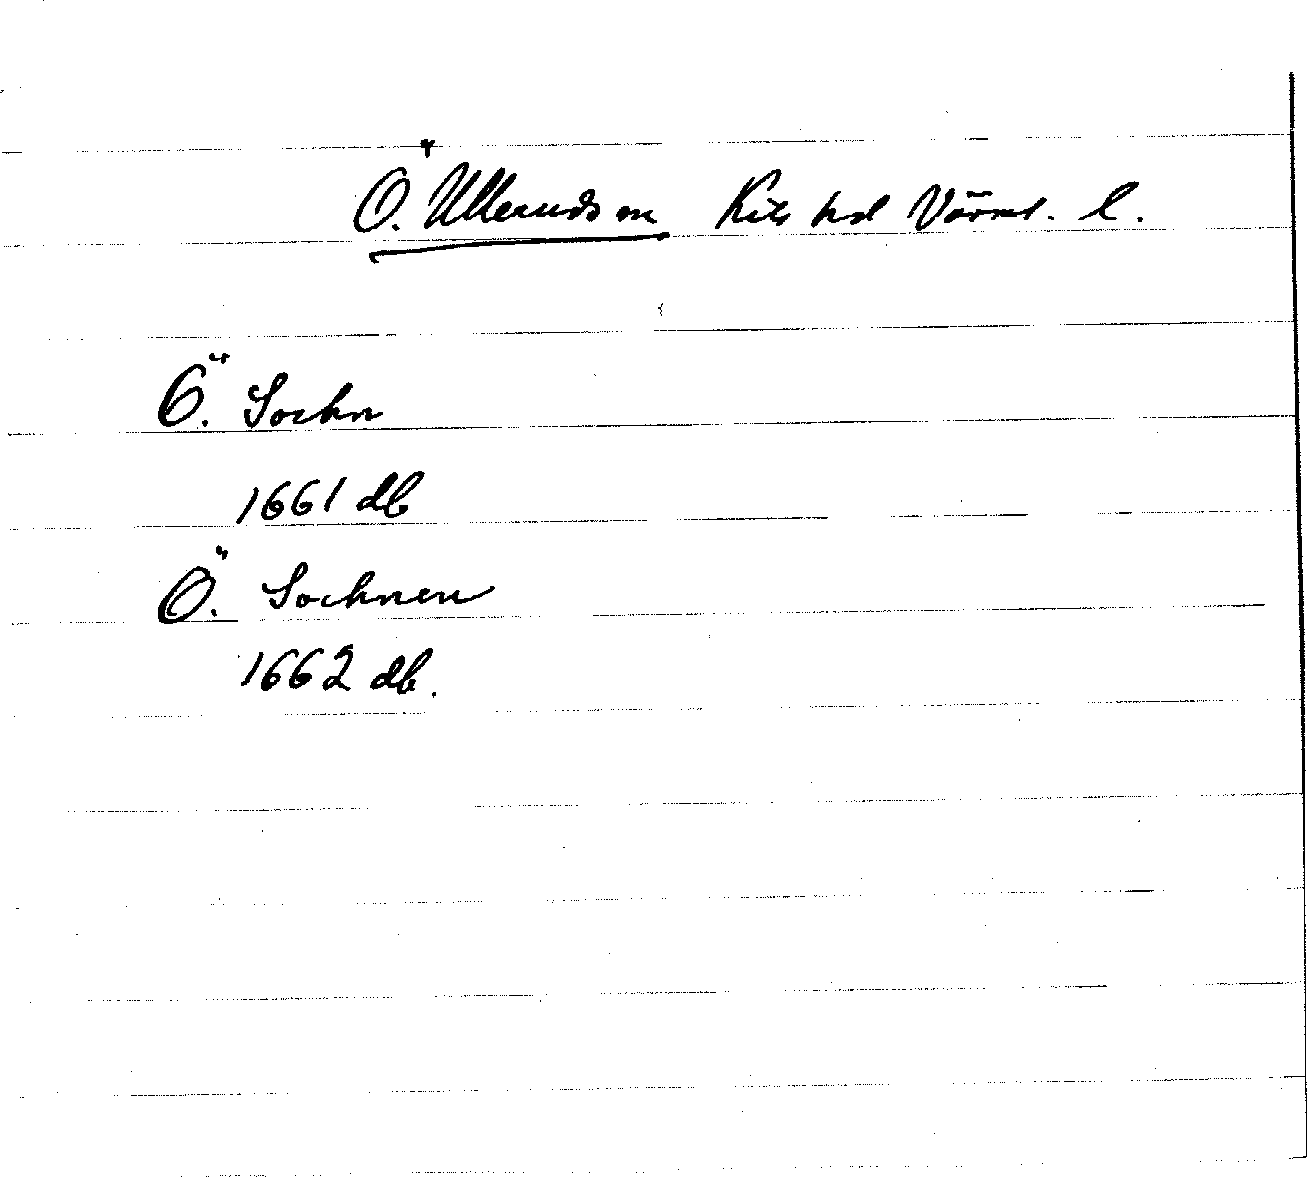 Ö. Ulleruds sn Kils hd Värml. l.
Ö. Sochn
1661 db
Ö. Sochnen
1662 db.